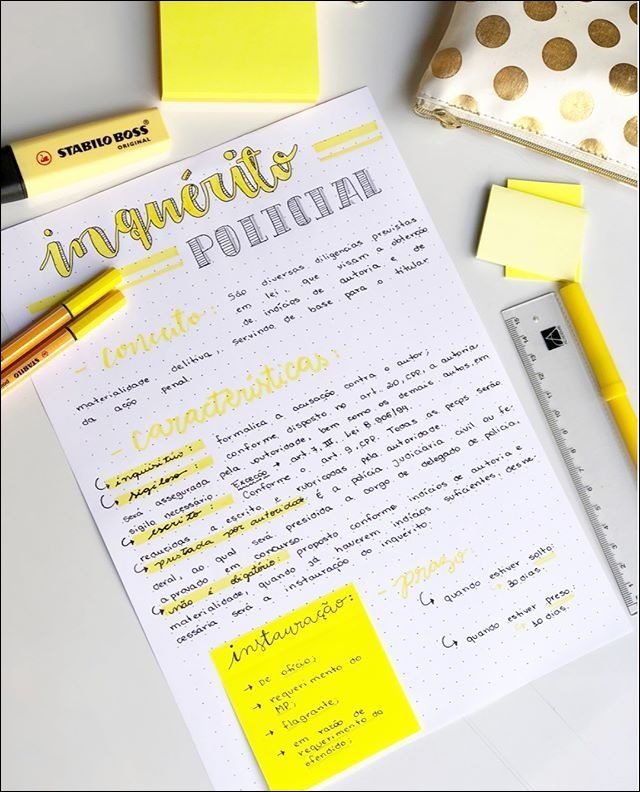 STABILO BOSS
ORIGINAL
inquérito
POLICIAL
- conceito: são diversas diligencias previstas
em lei, que visam a obtenção
de indícios de autoria e de
materialidade delitiva, servindo de base para o titular
da ação penal.
- características:
inquisitivo: formaliza a acusação contra o autor;
sigiloso: conforme disposto no art. 20, CPP, a autoria
será assegurada pela autoridade, bem como os demais autos, em
sigilo necessário. Exceção → art 7, III, Lei 8.906/94.
escrito: Conforme o art 9, CPP. Todas as peças serão
reduzidas a escrito e rubricadas pela autoridade.
prestada por autoridade: é a polícia judiciária civil ou fe-
deral, ao qual será presidida a cargo de delegado de polícia,
aprovado em concurso.
não é obigatório: proposto conforme indícios de autoria e
materialidade, quando já haverem indícios suficientes, desne-
cessária será a instauração do inquérito.
- prazo:
quando estiver solto:
30 dias.
quando estiver preso:
10 dias.
instauração:
→ De ofício;
→ requerimento do
MP;
→ flagrante;
→ em razão de
requerimento do
ofendido;
STABILO